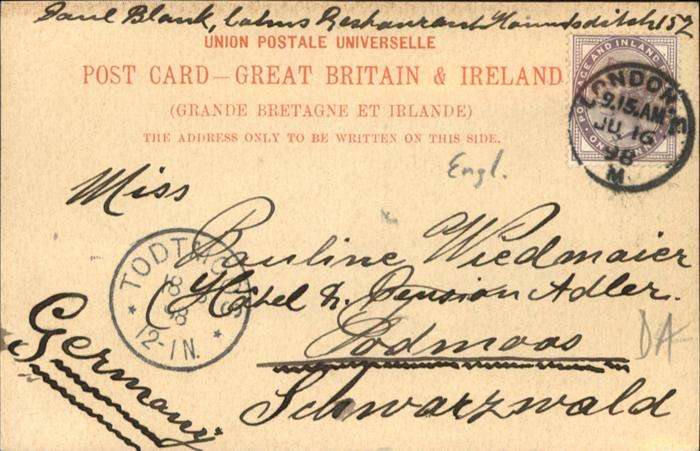 Paul Blank, Cohns Restaurant Houndsditch 157
UNION POSTALE UNIVERSELLE
POST CARD—GREAT BRITAIN & IRELAND
(GRANDE BRETAGNE ET IRLANDE)
THE ADDRESS ONLY TO BE WRITTEN ON THIS SIDE.
POSTAGE AND INLAND
LONDON E
9.15.AM
JU 16
98
M
Engl.
Miss
Pauline Wiedmaier
Hôtel & Pension Adler.
Todmoos
Schwarzwald
Germany
TODTMOOS
18
98
12-1N.
DA